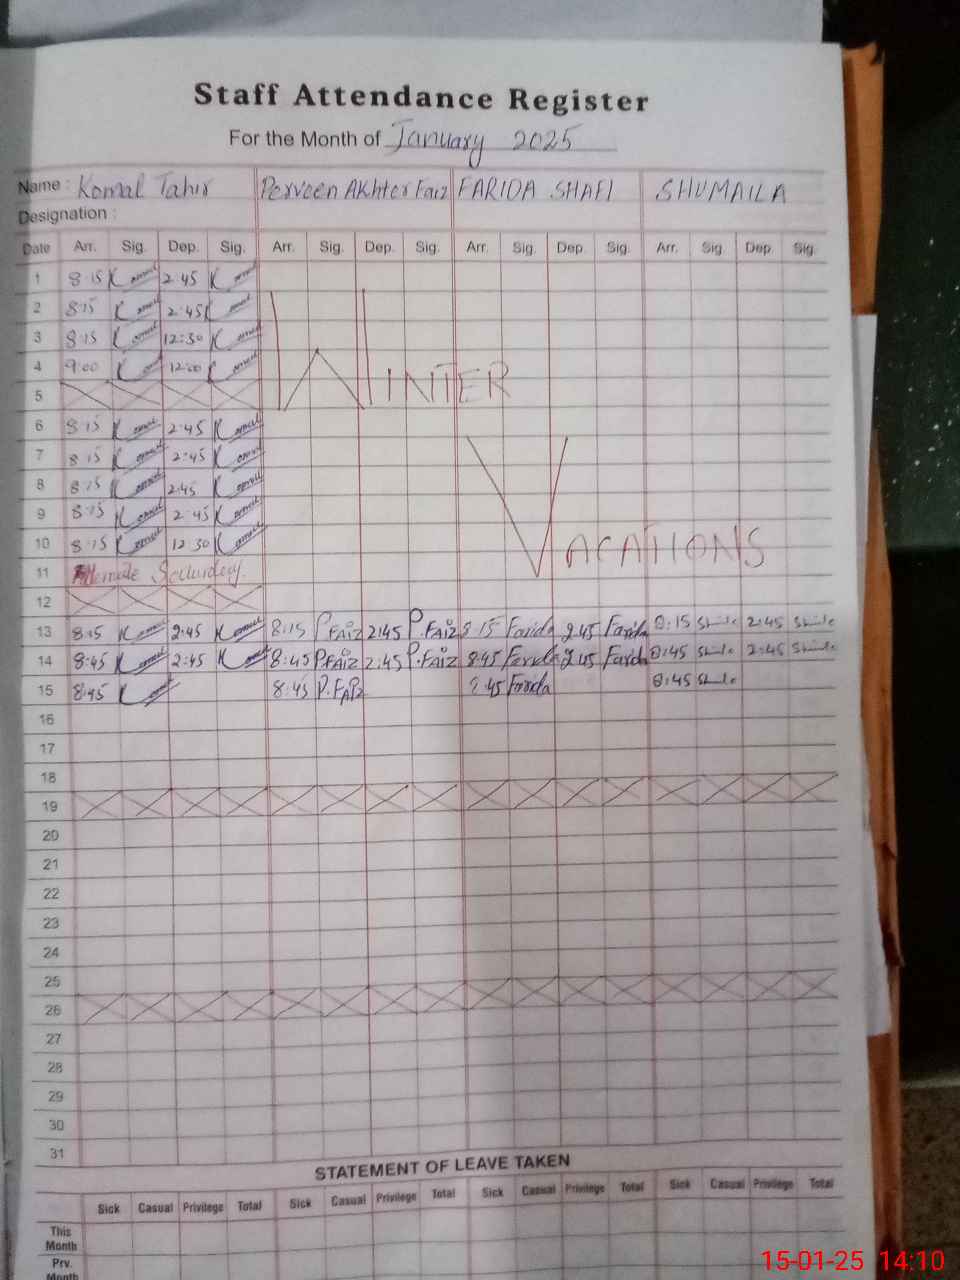 Staff Attendance Register
For the Month of January 2025
Name : Komal Tahir Perveen Akhter Faiz FARIDA SHAFI SHUMAILA
Designation :
Date Arr. Sig. Dep. Sig. Arr. Sig. Dep. Sig. Arr. Sig. Dep. Sig. Arr. Sig. Dep. Sig.
1 8:15 Komal 2:45 Komal
2 8:15 Komal 2:45 Komal
3 8:15 Komal 12:30 Komal
4 9:00 Komal 12:00 Komal
WINTER
5
6 8:15 Komal 2:45 Komal
7 8:15 Komal 2:45 Komal
8 8:15 Komal 2:45 Komal
9 8:15 Komal 2:45 Komal
10 8:15 Komal 12:30 Komal
VACATIONS
11 Alternate Saturday.
12
13 8:15 Komal 2:45 Komal 8:15 P.FAiZ 2:45 P.FAiZ 8:15 Farida 2:45 Farida 8:15 2:45
14 8:45 Komal 2:45 Komal 8:45 P.FAiZ 2:45 P.FAiZ 8:45 Farida 2:45 Farida 8:45 2:45
15 8:45 Komal 8:45 P.FAiZ 8:45 Farida 8:45
16
17
18
19
20
21
22
23
24
25
26
27
28
29
30
31
STATEMENT OF LEAVE TAKEN
Sick Casual Privilege Total Sick Casual Privilege Total Sick Casual Privilege Total Sick Casual Privilege Total
This
Month
Prv.
Month
15-01-25 14:10